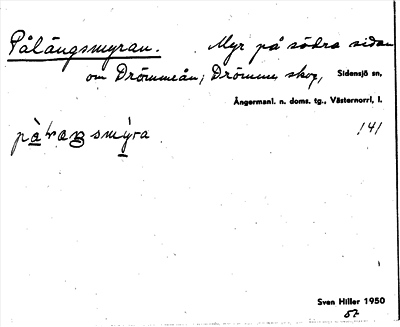 Pålängsmyran. Myr på södra sidan
om Drömmeån, Drömme skog, Sidensjö sn,
Ångermanl. n. doms. tg., Västernorrl. l.
141
Sven Hiller 1950